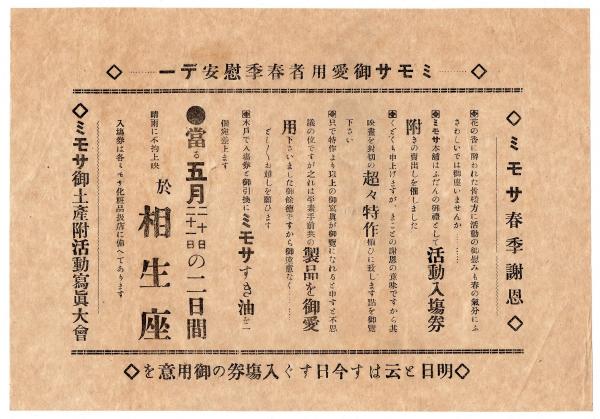 ◇……ミモサ御愛用者春季慰安デー……◇
◇ミモサ春季謝恩◇
花の香に醉われた皆樣方に活動の御慰みも春の氣分にふ
さわしいでは御座いませんか………
ミモサ本舗はふだんの御禮として活動入塲券
附きの賣出しを催しました
くどくも申上げますが、まことの謝恩の意味ですから其
映畫を封切の超々特作揃ひに致します點を御覽
下さい
只で特作より以上の御寫眞が御覽になれると申すと不思
議の位ですが之れは平素手前共の製品を御愛
用下さいました御餘德ですから御遠慮なく………
どし／＼お越しを願ひます
木戸で入塲券と御引換にミモサすき油を一
個宛差上ます
●當る五月二十日二十一日の二日間
晴雨に不拘上映
於相生座
入塲券は各ミモサ化粧品扱店に備へてあります
◇ミモサ御土產附活動寫眞大會
◇明日と云はず今日すぐ入塲券の御用意を◇